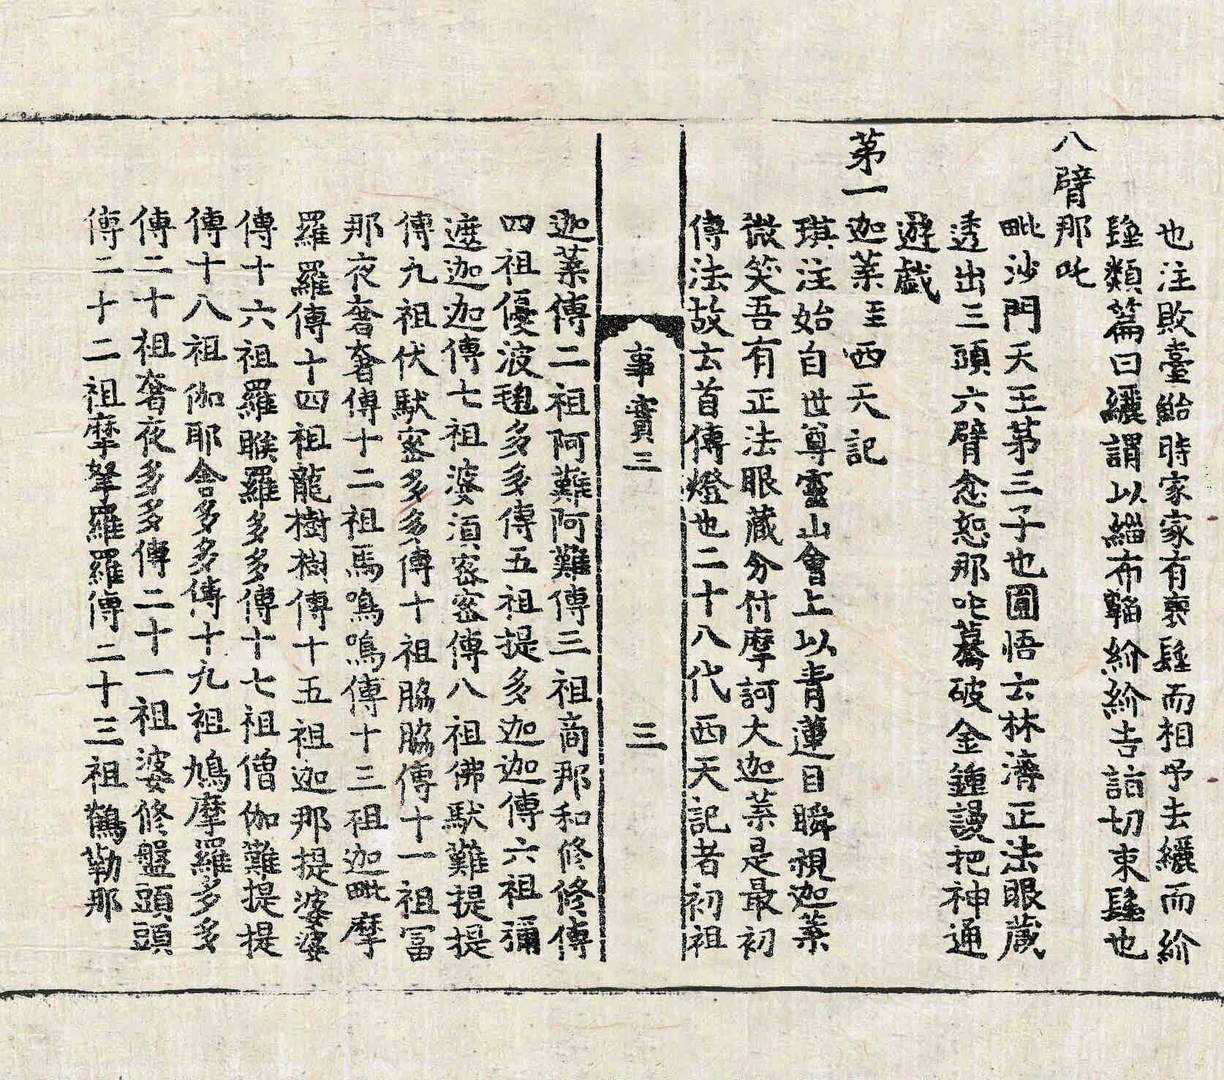 也注敗臺鮐時家家有喪髽而相予去纚而紒
髽類篇曰纚謂以緇布韜紒紒吉詣切束髽也
八臂那吒
毗沙門天王苐三子也圜悟云林濟正法眼蔵
透出三頭六臂忿怒那吒驀破金鍾謾把神通
遊戲
苐一迦葉至西天記
瑱注始自世尊靈山會上以青蓮目瞬視迦葉
微笑吾有正法眼蔵分付摩訶大迦葉是最初
傳法故云首傳燈也二十八代西天記者初祖
事實三
三
迦葉傳二祖阿難阿難傳三祖商那和修修傳
四祖優波毱多多傳五祖提多迦迦傳六祖彌
遮迦迦傳七祖婆湏密密傳八祖佛馱難提提
傳九祖伏馱密多多傳十祖脇脇傳十一祖冨
那夜奢奢傳十二祖馬鳴鳴傳十三祖迦毗摩
羅羅傳十四祖龍樹樹傳十五祖迦那提婆婆
傳十六祖羅睺羅多多傳十七祖僧伽難提提
傳十八祖伽耶舎多多傳十九祖鳩摩羅多多
傳二十祖奢夜多多傳二十一祖婆修盤頭頭
傳二十二祖摩拏羅羅傳二十三祖鶴勒那